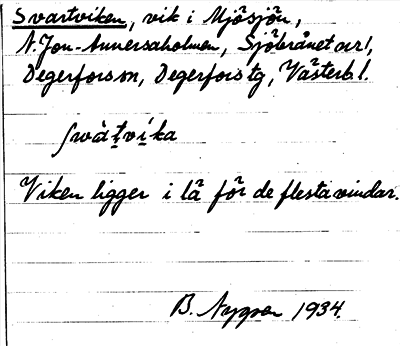 Svartviken, vik i Mjösjön,
N. Jon-Annersaholmen, Sjöbrånet arr,
Degerfors sn, Degerfors tg, Västerb l.
ʃwàt̬vi̬ka
Viken ligger i lä för de flesta vindar.
B. Nygren 1934.